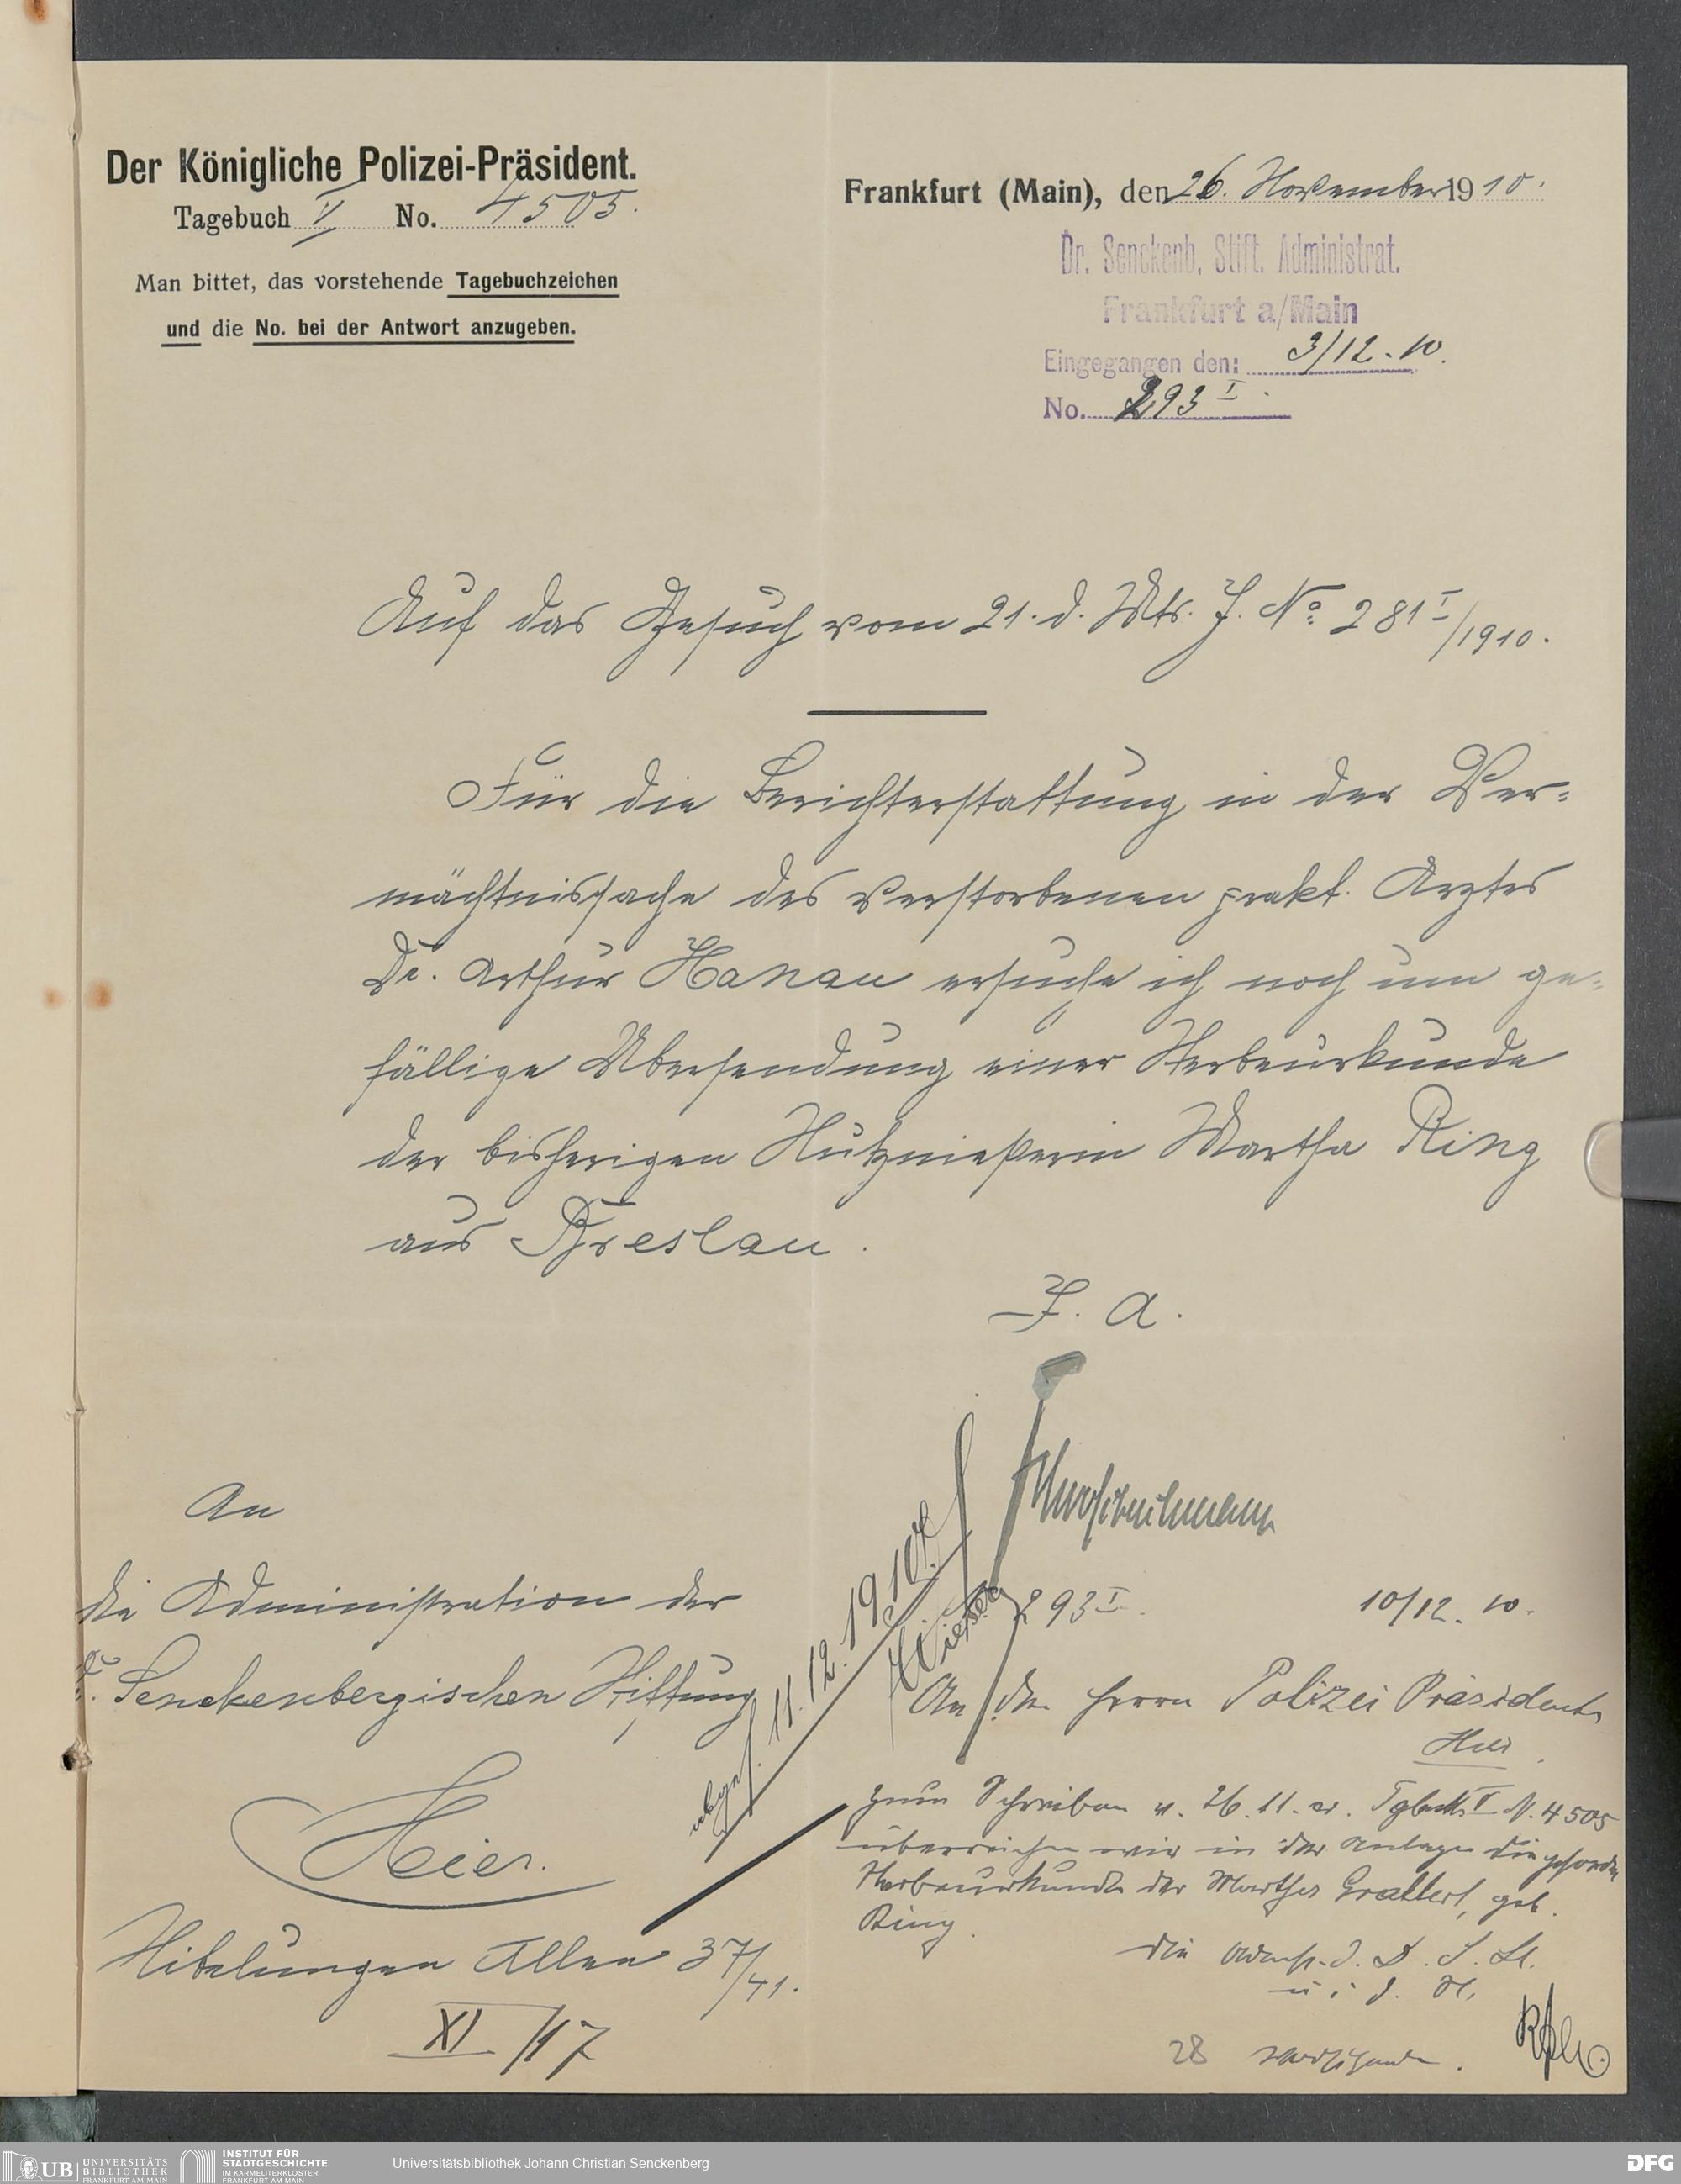 Der Königliche Polizei-Präsident.
Tagebuch V No. 4505.
Man bittet, das vorstehende Tagebuchzeichen
und die No. bei der Antwort anzugeben.
Frankfurt (Main), den 26. November 1910.
Dr. Senckenb. Stift. Administrat.
Frankfurt a/Main
Eingegangen den: 3/12. 10.
No. 293 I.
Auf das Gesuch vom 21. d. Mts. J. No. 281 I/1910.
Für die Berichterstattung in der Ver-
mächtnissache des verstorbenen prakt. Arztes
Dr. Arthur Hanau ersuche ich noch um ge-
fällige Übersendung einer Sterbeurkunde
der bisherigen Nutznießerin Martha Ring
aus Breslau.
J. A.
An
die Administration der
Dr. Senckenbergischen Stiftung
Hier.
Nibelungen Allee 37/41.
XI/17
11.12.1910
293 I. 10/12. 10.
An den Herrn Polizei Präsidenten
Hier.
Zum Schreiben v. 26.11. cr. Tgbch. V N. 4505
überreichen wir in der Anlage die
Sterbeurkunde der Martha Grallert, geb.
Ring.
Die Admst. d. D. S. St.
28
UB UNIVERSITÄTS
BIBLIOTHEK
FRANKFURT AM MAIN
INSTITUT FÜR
STADTGESCHICHTE
IM KARMELITERKLOSTER
FRANKFURT AM MAIN
Universitätsbibliothek Johann Christian Senckenberg
DFG